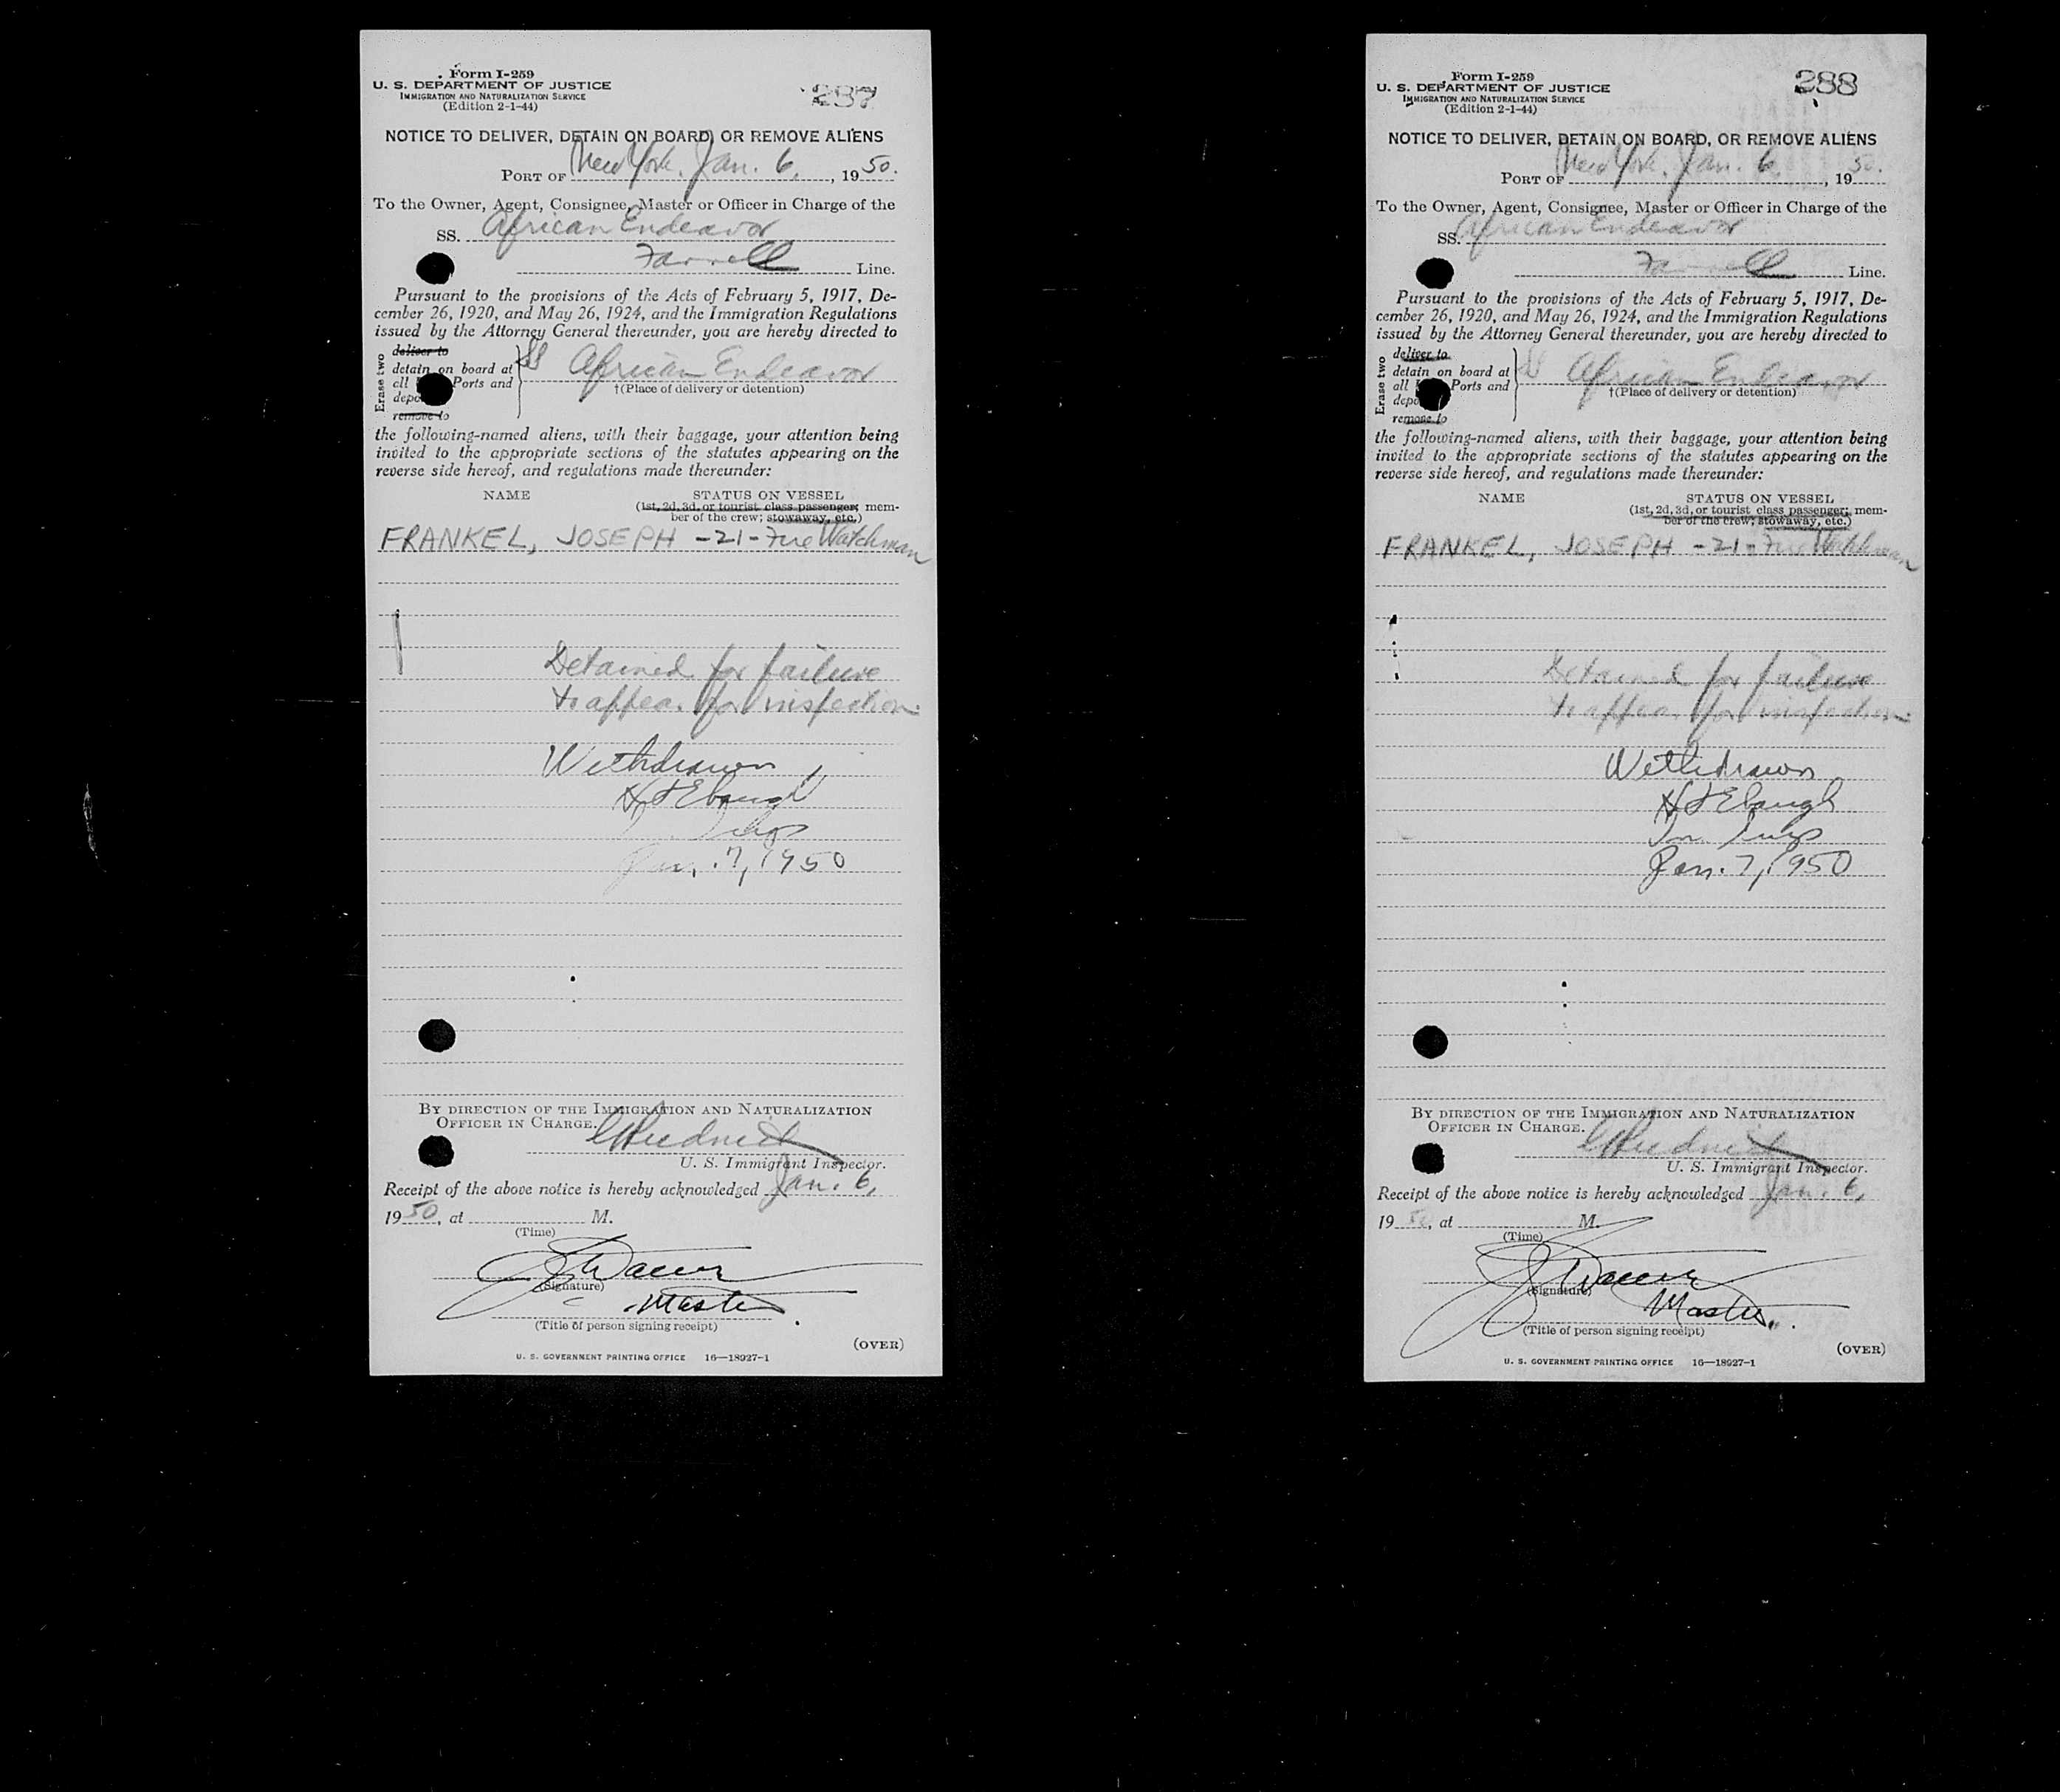 Form I-259
U. S. DEPARTMENT OF JUSTICE
IMMIGRATION AND NATURALIZATION SERVICE
(Edition 2-1-44)
287
NOTICE TO DELIVER, DETAIN ON BOARD, OR REMOVE ALIENS
PORT OF New York. Jan. 6, , 19 50.
To the Owner, Agent, Consignee, Master or Officer in Charge of the
SS. African Endeavor
Farrell Line.
Pursuant to the provisions of the Acts of February 5, 1917, De-
cember 26, 1920, and May 26, 1924, and the Immigration Regulations
issued by the Attorney General thereunder, you are hereby directed to
Erase two
deliver to
detain on board at
all Ports and
remove to
SS African Endeavor
†(Place of delivery or detention)
the following-named aliens, with their baggage, your attention being
invited to the appropriate sections of the statutes appearing on the
reverse side hereof, and regulations made thereunder:
NAME STATUS ON VESSEL
(1st, 2d, 3d, or tourist class passenger; mem-
ber of the crew; stowaway, etc.)
FRANKEL, JOSEPH -21- Fire Watchman
Detained for failure
to appear for inspection.
Withdrawn
Ebaugh
Jan. 7, 1950
BY DIRECTION OF THE IMMIGRATION AND NATURALIZATION
OFFICER IN CHARGE.
U. S. Immigrant Inspector.
Receipt of the above notice is hereby acknowledged Jan. 6,
19 50, at M.
(Time)
(Signature)
Master
(Title of person signing receipt)
(OVER)
U. S. GOVERNMENT PRINTING OFFICE 16—18927-1
Form I-259
U. S. DEPARTMENT OF JUSTICE
IMMIGRATION AND NATURALIZATION SERVICE
(Edition 2-1-44)
288
NOTICE TO DELIVER, DETAIN ON BOARD, OR REMOVE ALIENS
PORT OF New York. Jan. 6, , 19 50.
To the Owner, Agent, Consignee, Master or Officer in Charge of the
SS. African Endeavor
Farrell Line.
Pursuant to the provisions of the Acts of February 5, 1917, De-
cember 26, 1920, and May 26, 1924, and the Immigration Regulations
issued by the Attorney General thereunder, you are hereby directed to
Erase two
deliver to
detain on board at
all Ports and
remove to
SS African Endeavor
†(Place of delivery or detention)
the following-named aliens, with their baggage, your attention being
invited to the appropriate sections of the statutes appearing on the
reverse side hereof, and regulations made thereunder:
NAME STATUS ON VESSEL
(1st, 2d, 3d, or tourist class passenger; mem-
ber of the crew; stowaway, etc.)
FRANKEL, JOSEPH -21- Fire Watchman
Detained for failure
to appear for inspection.
Withdrawn
Ebaugh
Im. Insp
Jan. 7, 1950
BY DIRECTION OF THE IMMIGRATION AND NATURALIZATION
OFFICER IN CHARGE.
U. S. Immigrant Inspector.
Receipt of the above notice is hereby acknowledged Jan. 6,
19 50, at M.
(Time)
(Signature)
Master.
(Title of person signing receipt)
(OVER)
U. S. GOVERNMENT PRINTING OFFICE 16—18927-1